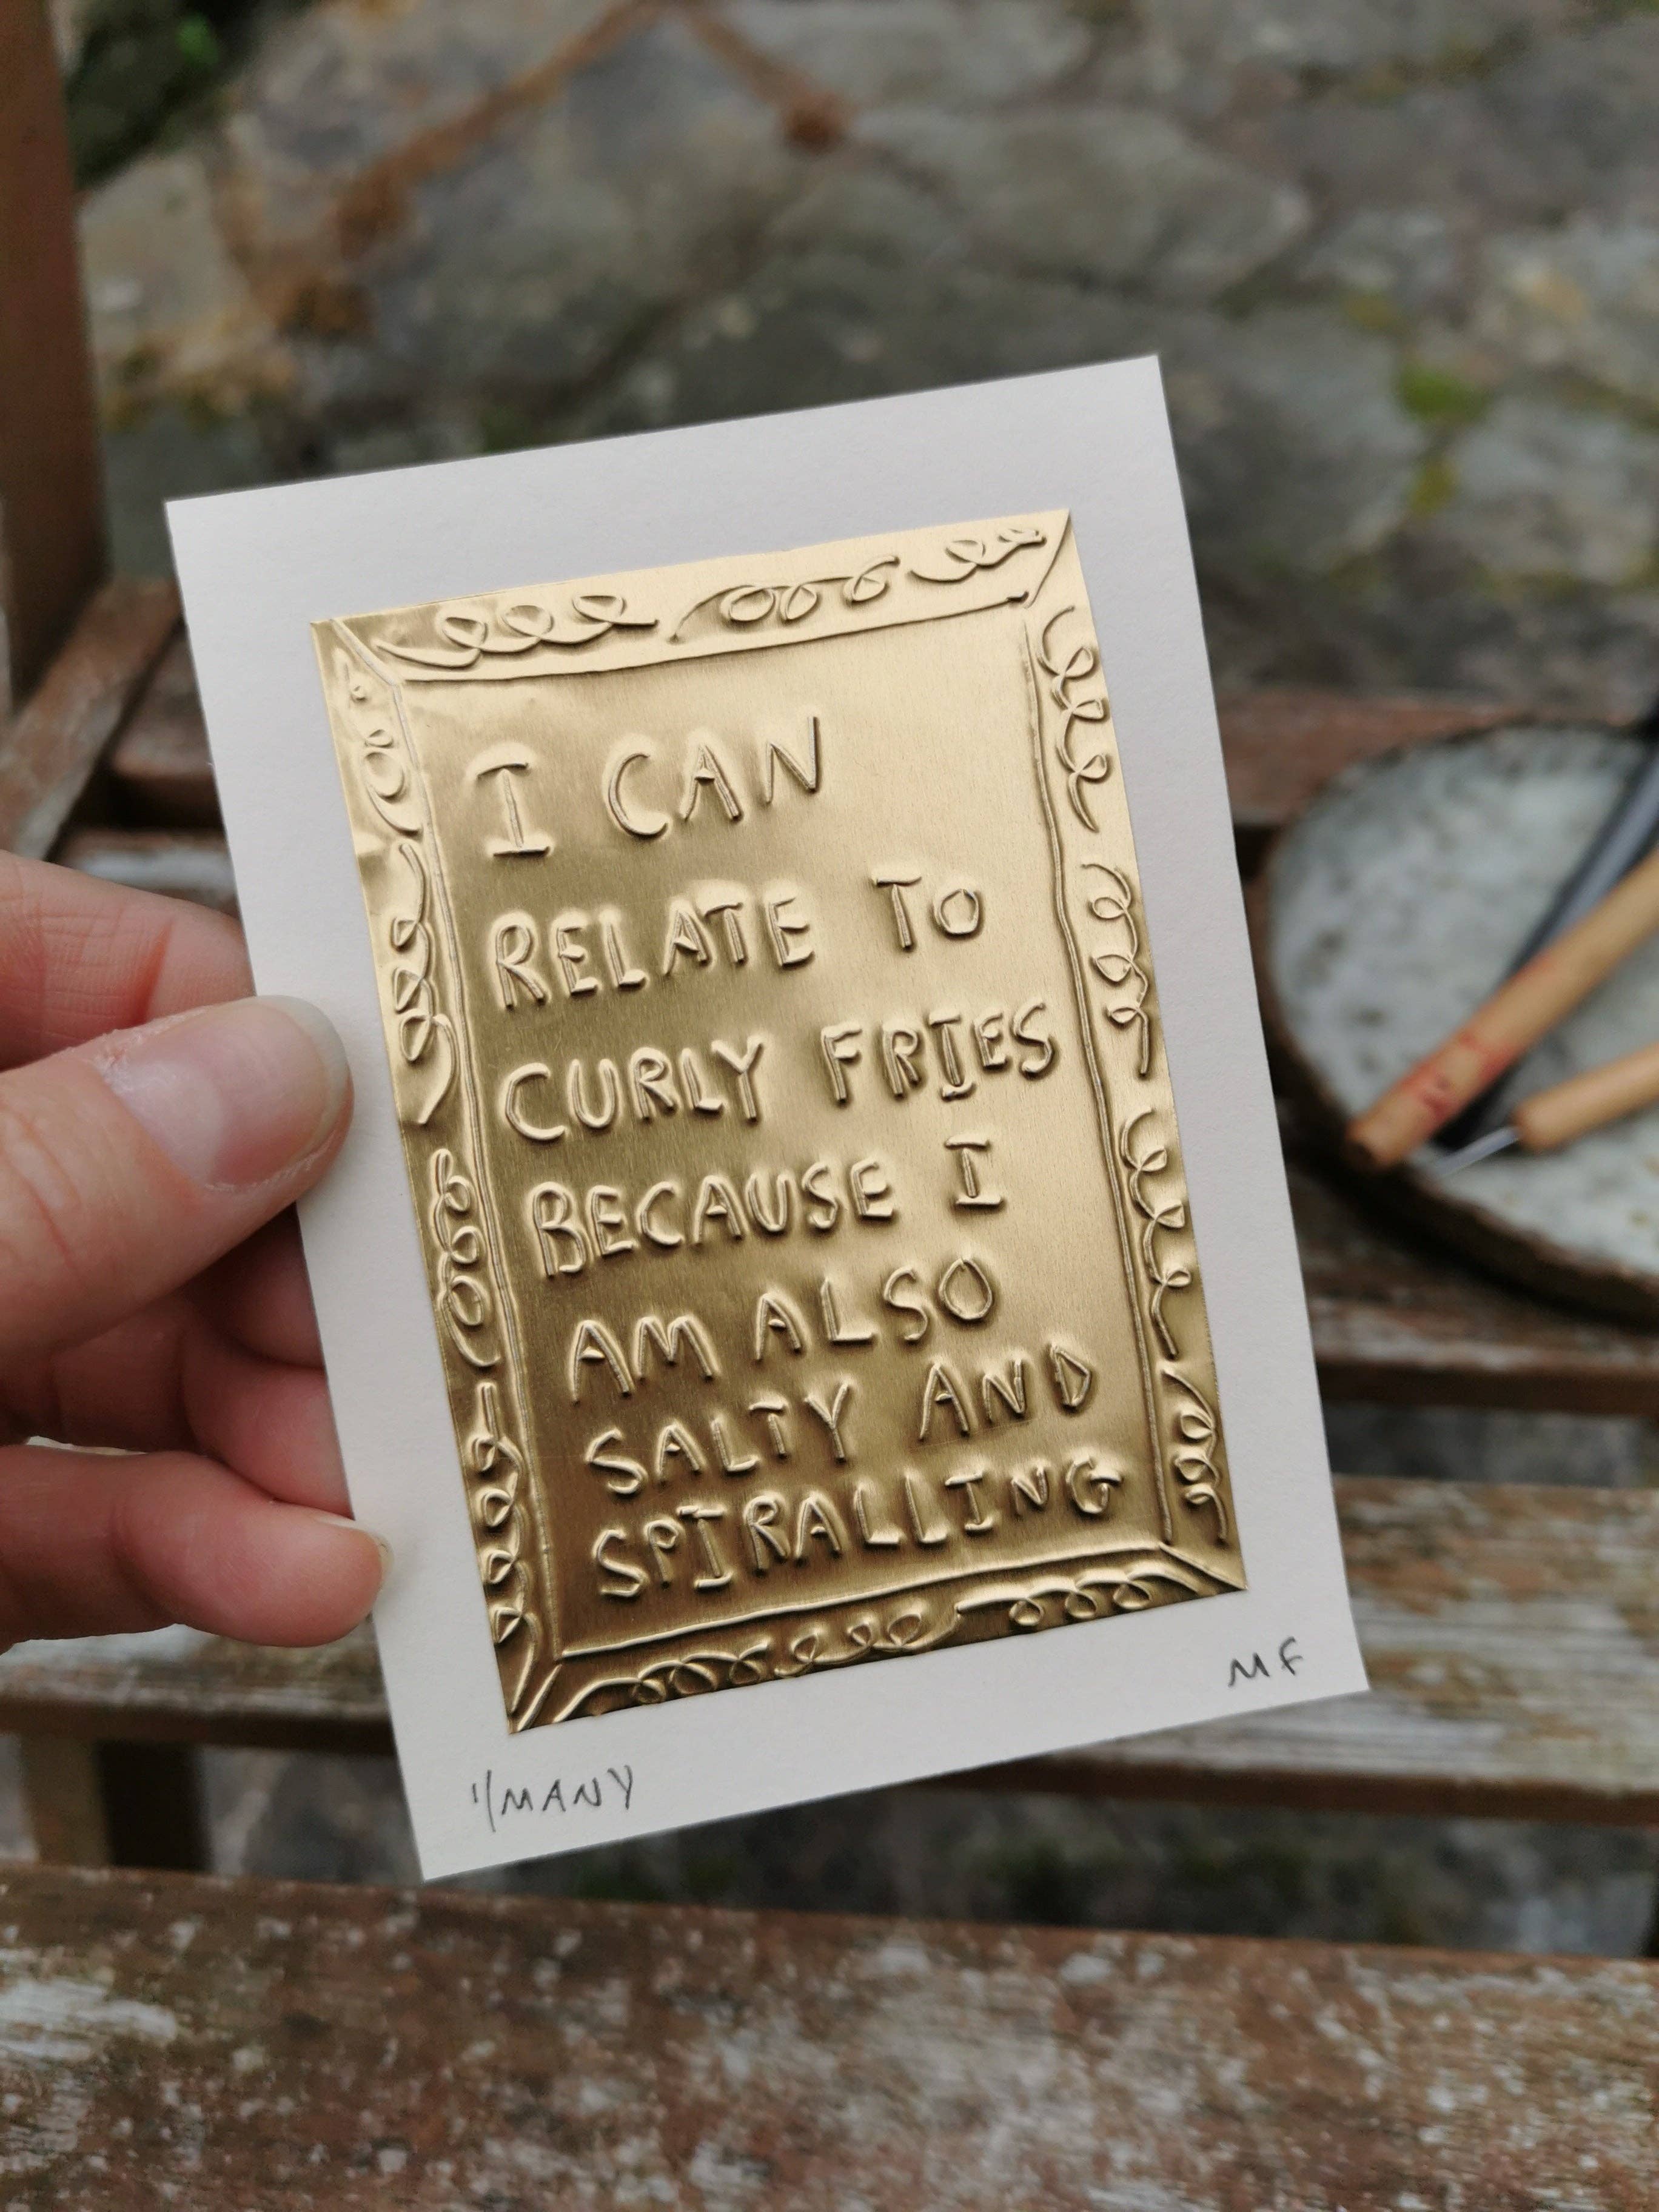 I CAN
RELATE TO
CURLY FRIES
BECAUSE I
AM ALSO
SALTY AND
SPIRALLING
MF
1/MANY